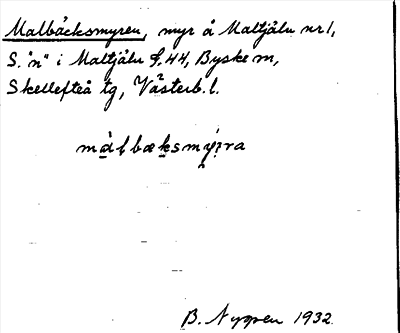 Malbäcksmyren, myr å Maltjäln nr 1,
S. "n" i Maltjäln f. 44, Byske sn,
Skellefteå tg, Västerb. l.
målbæksmýra
B. Nygren 1932.